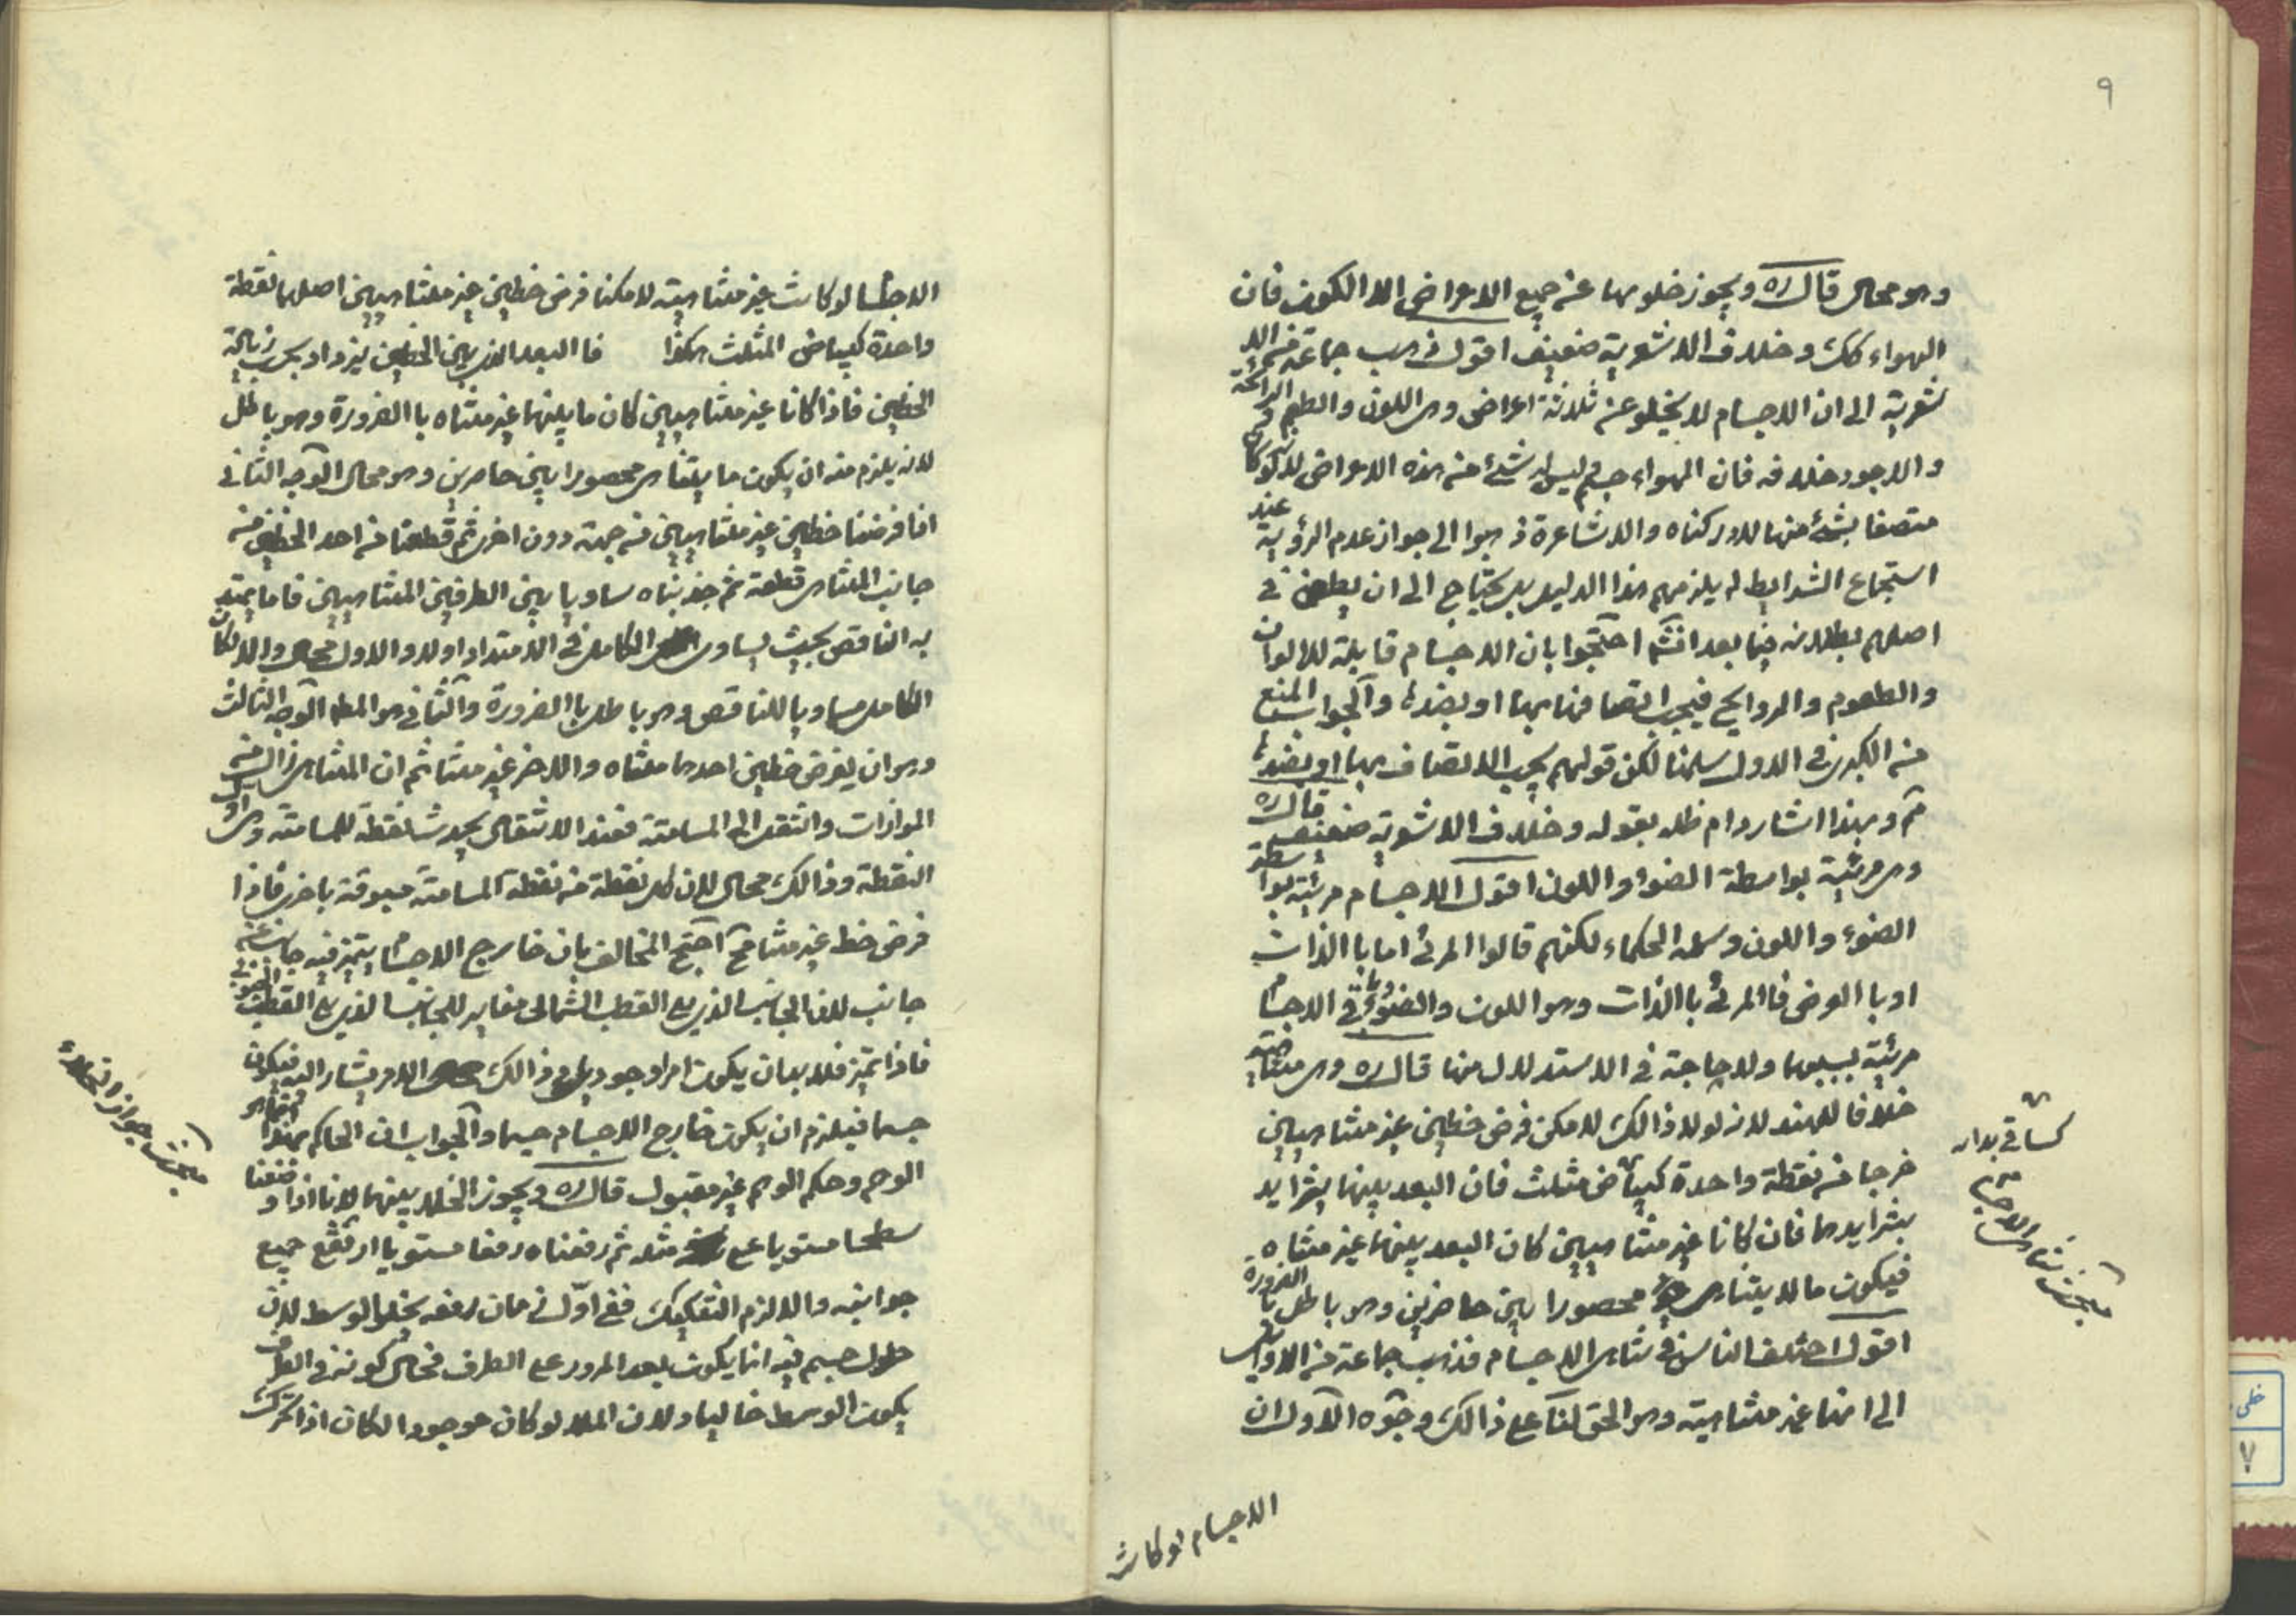 ٩
وهو محال قال ره ويجوز خلوها عن جميع الاعراض الا الكون فان
الهواء كك وخلاف الاشعرية ضعيف اقول ذهب جماعة من الا
شعرية الى ان الاجسام لا يخلو عن ثلاثة اعراض وهى اللون والطعم والرائحة
والاجود خلافه فان الهواء جسم ليس له شئ من هذه الاعراض لانه لو كان
متصفا بشئ منها لادركناه والاشاعرة ذهبوا الى جواز عدم الرؤية عند
استجماع الشرايط لم يلزمهم هذا الدليل بل يحتاج الى ان يطعن فى
اصلهم بطلانه فيما بعد انشم احتجوا بان الاجسام قابلة للالوان
والطعوم والروايح فيجب اتصافها بها او بضدها والجواب المنع
من الكبرى فى الاول سلمنا لكن قولهم يجب الاتصاف بها او بضدها
مم وبهذا اشار دام ظله بقوله وخلاف الاشعرية ضعيف قال ره
وهى مرئية بواسطة الضوا واللون اقول الاجسام مرئية بواسطة
الضوء واللون وسلمه الحكماء لكنهم قالوا المرئ اما باالذات
او باالعرض فاالمرئ باالذات وهو اللون والضوء فى الاجسام
مرئية بسببهما ولا حاجة فى الاستدلال منها قال ره وهى متناهية
خلافا للهند لانه لولا ذالك لامكن فرض خطين غير متناهيين
خرجا من نقطة واحدة كساقى مثلث فان البعد بينهما يتزايد
بتزايدهما فان كانا غير متناهيين كان البعد بينهما غير متناه
فيكون ما لا يتناهى محصورا بين حاصرين وهو باطل باالضرورة
اقول اختلف الناس فى تناهى الاجسام فذهب جماعة من الاوايل
الى انها غير متناهية وهو الحق لنا على ذالك وجوه الاول ان
كساقى
مبحث تناهى الاجسام
الاجسام لو كانت
الاجسام لو كانت غير متناهية لامكنا فرض خطين غير متناهيين اصلهما نقطة
واحدة كساقى المثلث هكذا فاالبعد الذى بين الخطين يزداد بحسب زيادة
الخطين فاذا كانا غير متناهيين كان ما بينهما غير متناه باالضرورة وهو باطل
لانه يلزم منه ان يكون ما يتناهى محصورا بين حاصرين وهو محال الوجه الثانى
انا فرضنا خطين غير متناهيين من جهة دون اخرى ثم قطعنا من احد الخطين من
جانب المتناهى قطعة ثم جذبناه ساويا بين الطرفين المتناهيين فاما يمتد
به الناقص بحيث يساوى الكامل فى الامتداد اولا والاول محال والا لكان
الكامل مساويا للناقص وهو باطل باالضرورة والثانى هو المط الوجه الثالث
وهو ان يفرض خطين احدهما متناه والاخر غير متناه ثم ان المتناهى زال من
الموازات وانتقل الى المسامتة فعند الانتقال يحدث نقطة للمسامتة وهى اول
النقطة وذالك محال لان كل نقطة من نقطة المسامتة مسبوقة باخرى فاذا
فرض خط غير متناه مح احتج المخالف بان خارج الاجسام يتميز فيه جانب عن
جانب لان الجانب الذى يلى القطب الشمالى مغاير للجانب الذى يلى القطب الجنوبى
فاذا تميز فلا بد بان يكون امرا وجوديا وذالك الامر يشار اليه فيكون
جسما فيلزم ان يكون خارج الاجسام جسما والجواب ان الحاكم بهذا انما هو
الوهم وحكم الوهم غير مقبول قال ره ويجوز الخلا بينهما لانا اذا وضعنا
سطحا مستويا على مثله ثم رفعناه رفعا مستويا ارتفع جميع
جوانبه والا لزم التفكيك ففى اول زمان رفعه يخلوا الوسط لان
حلول جسم فيه انما يكون بعد المرور على الطرف فحال كونه فى الطرف
يكون الوسط خاليا ولان الملا لو كان موجودا لكان اذا تحرك
مبحث جواز الخلاء
خطى
٧